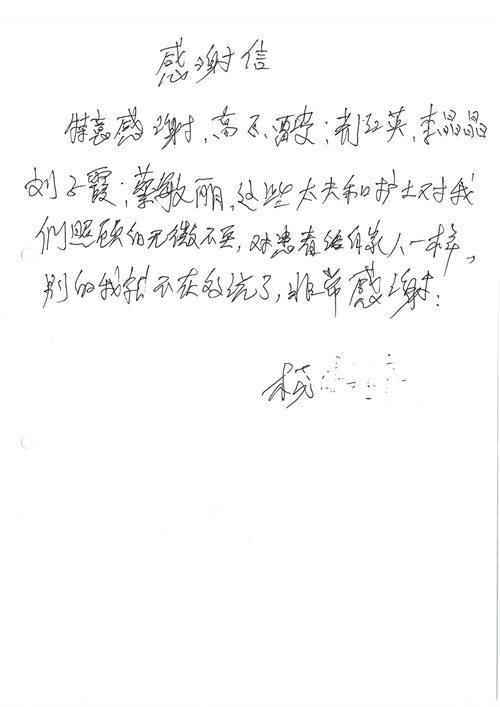 感谢信
特意感谢,高不酉安;尧红英,李晶晶
刘子霞;蔡敏丽,这些大夫和护士对我
们照顾的无微不至,对患者给自家人一样,
别的我就不在多说了,非常感谢!
杨